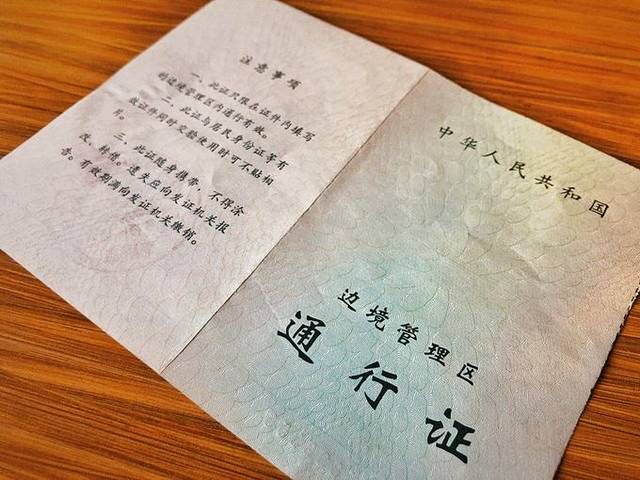 注意事项
一、此证只限在证件内填写
的边境管理区内通行有效。
二、此证与居民身份证等有
效证件同时交验使用时可不贴相
片。
三、此证随身携带，不得涂
改、转借。遗失应向发证机关报
告。有效期满向发证机关缴销。
中华人民共和国
边境管理区
通行证